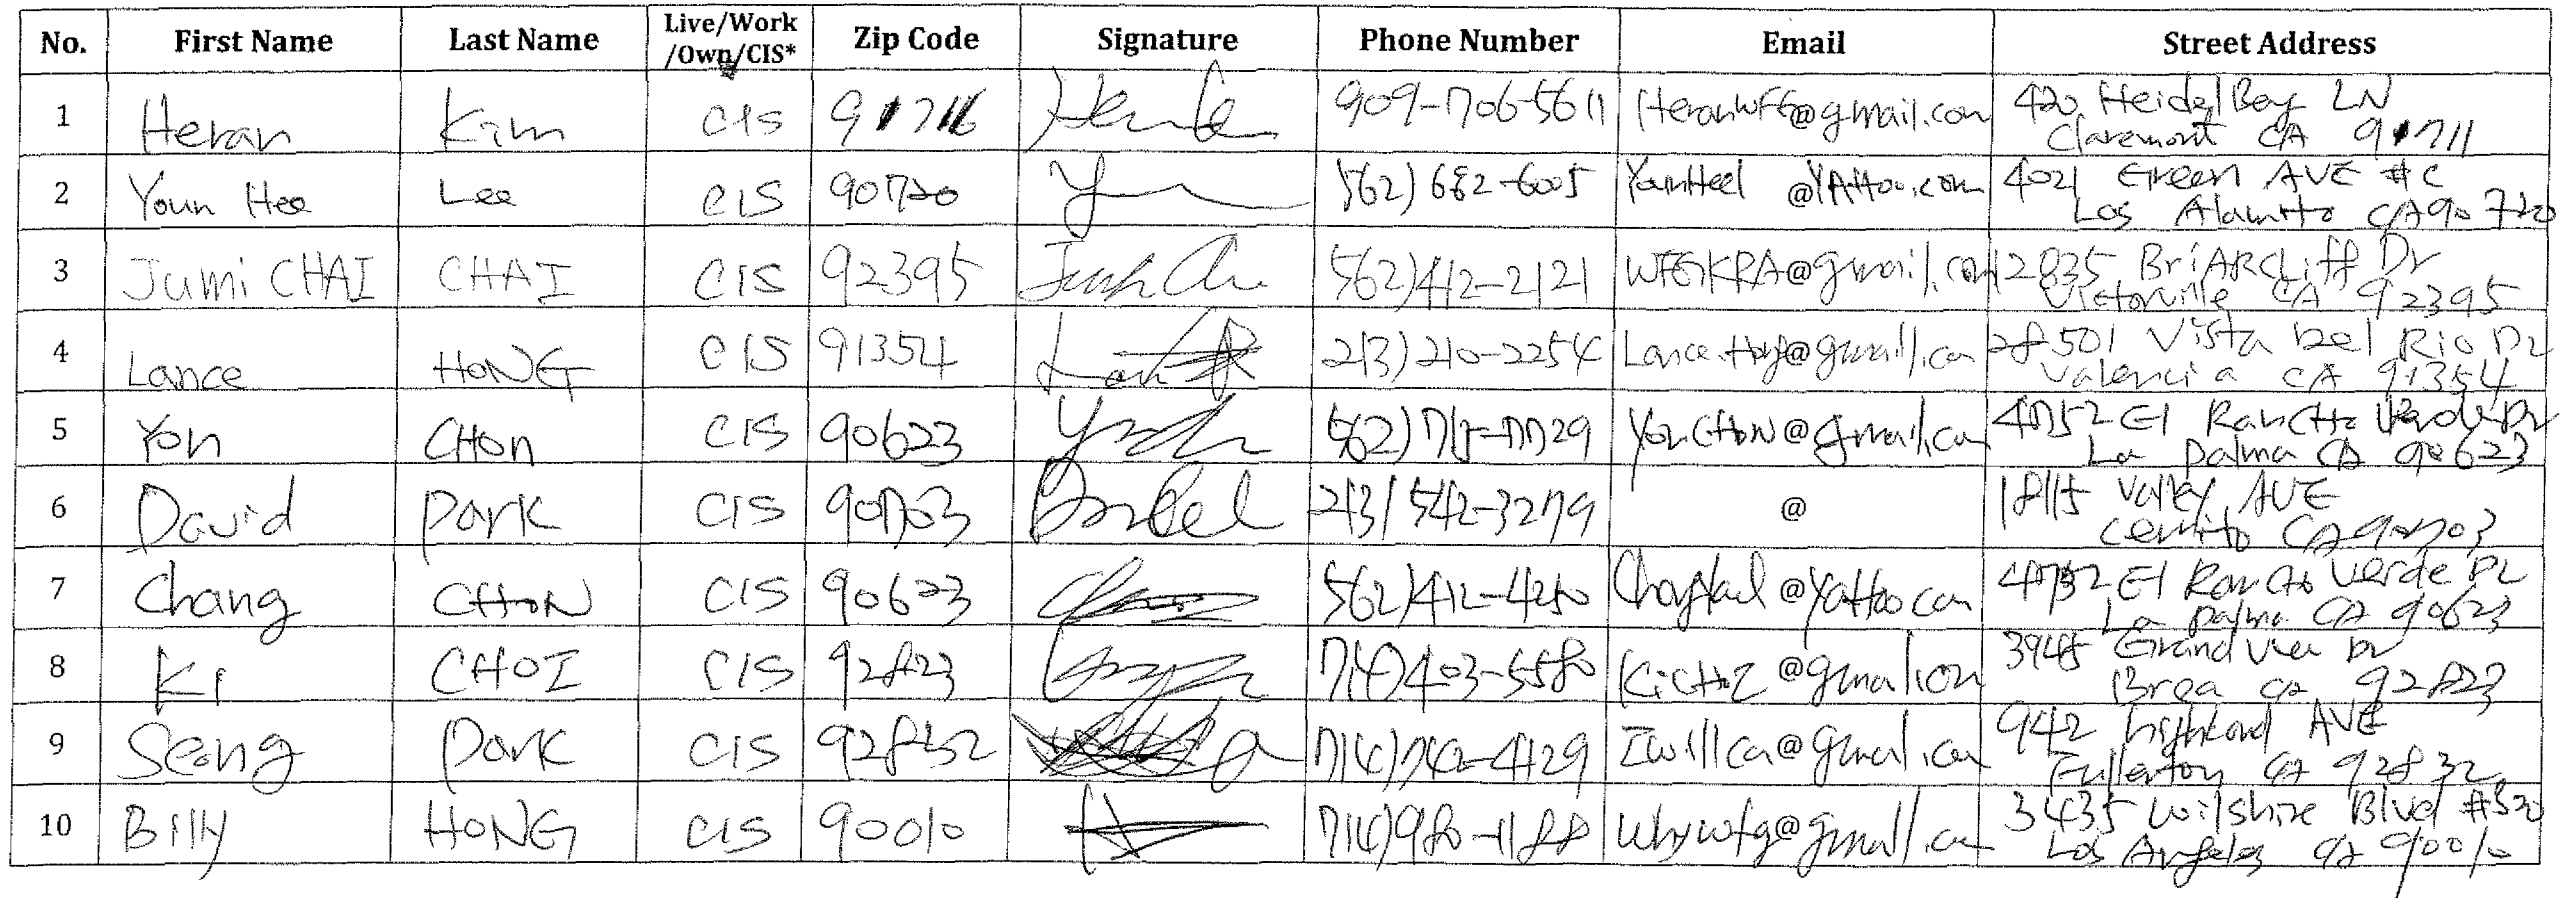 No. First Name Last Name Live/Work/Own/CIS* Zip Code Signature Phone Number Email Street Address
1 Heran Kim CIS 909-706-5611 HeranWFG@gmail.com 420 Heidelbay LN
Claremont CA 91711
2 Youn Hee Lee CIS 90720 562) 682-6005 YounHeel @YAHoo.com 4021 Green AVE #C
Los Alamito CA 90720
3 Jumi CHAI CHAI CIS 92395 562)412-2121 WFGKRA@gmail.com 12835 BriARCliff Dr
Victorville CA 92395
4 Lance HONG CIS 91354 213)210-2254 28501 Vista Del Rio DR
Valencia CA 91354
5 Yon CHON CIS 90623 YonCHON@gmail.com 4752 El RancHo Verde Dr
La Palma CA 90623
6 David Park CIS 90703 213) 542-3279 @ Valley AVE
Cerrito CA 90703
7 Chang CHON CIS 90623 562)412-4250 @YaHoo.com 4752 El Rancho Verde DR
La Palma CA 90623
8 Ki CHOI CIS 92823 714)403-5580 @gmail.com 3948 Grandview Dr
Brea CA 92823
9 Seong Park CIS 92832 Iwillca@gmail.com 942 highland AVE
Fullerton CA 92832
10 Billy HONG CIS 90010 714)980-1188 @gmail.com 3435 Wilshire Blvd #520
Los Angeles CA 90010